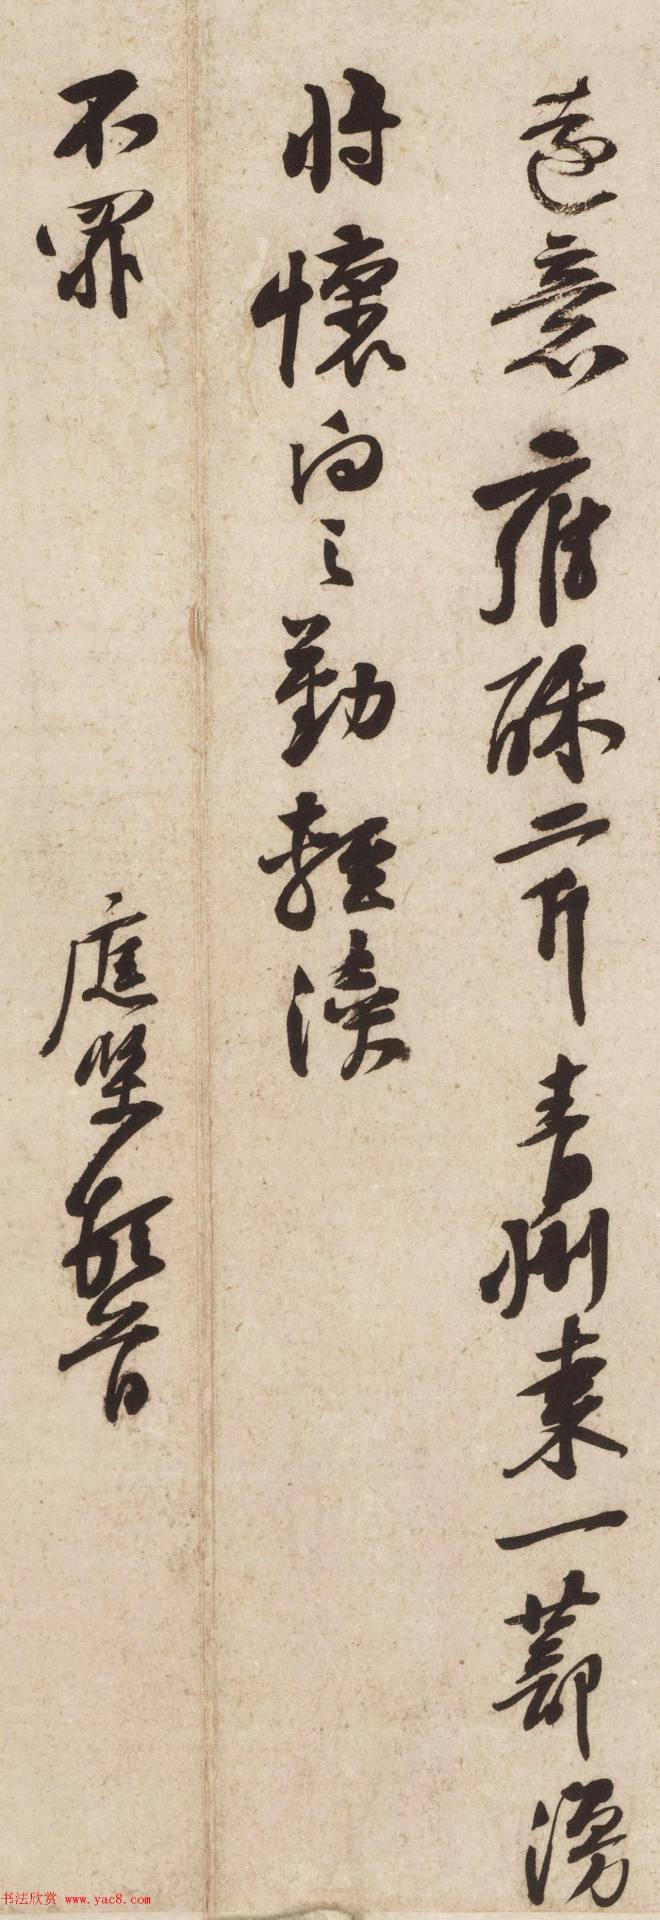 遠意雍酥二斤青州棗一蔀漫
将懷向之勤輕瀆
不罪 庭堅頓首
书法欣赏 www.yac8.com